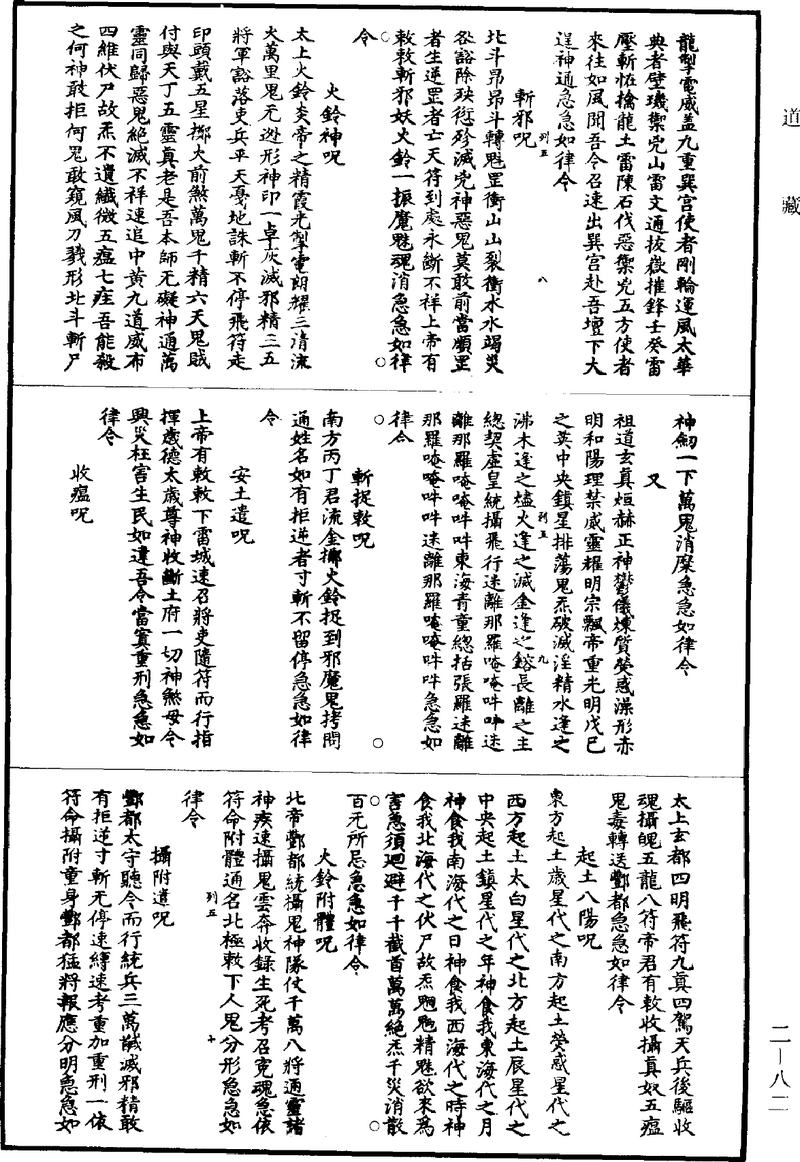 道藏
龍掣電威蓋九重巽宮使者剛輪運風太華
典者壁璣禦兇山雷文通拔嶽摧鋒壬癸雷
壓斬恠擒龍土雷陳石伐惡禦兇五方使者
來往如風聞吾令召速出巽宮赴吾壇下大
逞神通急急如律令
斬邪呪
列五
八
北斗昂昂斗轉魁罡衝山山裂衝水水竭災
咎豁除殃愆殄滅兇神惡鬼莫敢前當順罡
者生逆罡者亡天符到處永斷不祥上帝有
敕敕斬邪妖火鈴一振魔魅魂消急急如律
令
火鈴神呪
太上火鈴炎帝之精霞光掣電朗耀三清流
火萬里鬼无遯形神印一卓灰滅邪精三五
將軍豁落吏兵平天憂地誅斬不停飛符走
印頭戴五星擲火前煞萬鬼千精六天鬼賊
付與天丁五靈真老是吾本師无礙神通萬
靈同歸惡鬼絕滅不祥速追中黃九道威布
四維伏尸故炁不遺纖微五瘟七疰吾能殺
之何神敢拒何鬼敢窺風刀戮形北斗斬尸
神劒一下萬鬼消糜急急如律令
又
祖道玄真烜赫正神鬱儀煉質熒惑澡形赤
明和陽理禁威靈耀明宗飄帝重光明戊己
之英中央鎮星排蕩鬼炁破滅淫精水逢之
列五
九
沸木逢之燼火逢之滅金逢之鎔長離之主
總契虛皇統攝飛行迷離那羅唵唵吽吽迷
離那羅唵唵吽吽東海青童總括張羅迷離
那羅唵唵吽吽迷離那羅唵唵吽吽急急如
律令
斬捉敕呪
南方丙丁君流金擲火鈴捉到邪魔鬼拷問
通姓名如有拒逆者寸斬不留停急急如律
令
安土遣呪
上帝有敕敕下雷城速召將吏隨符而行指
揮歲德太歲尊神收斷土府一切神煞毋令
興災枉害生民如違吾令當寘重刑急急如
律令
收瘟呪
太上玄都四明飛符九真四駕天兵後驅收
魂攝魄五龍八符帝君有敕收攝真奴五瘟
鬼毒轉送酆都急急如律令
起土八陽呪
東方起土歲星代之南方起土熒惑星代之
西方起土太白星代之北方起土辰星代之
中央起土鎮星代之年神食我東海代之月
神食我南海代之日神食我西海代之時神
食我北海代之伏尸故炁魍魎精魅欲來為
害急須迴避千千截首萬萬絕炁千災消散
百无所忌急急如律令
火鈴附體呪
北帝酆都統攝鬼神隊仗千萬八將通靈諸
神疾速攝鬼雲奔收錄生死考召冤魂急依
符命附體通名北極敕下人鬼分形急急如
列五
十
律令
攝附遣呪
酆都太守聽令而行統兵三萬馘滅邪精敢
有拒逆寸斬无停速縛速考重加重刑一依
符命攝附童身酆都猛將報應分明急急如
二—八二